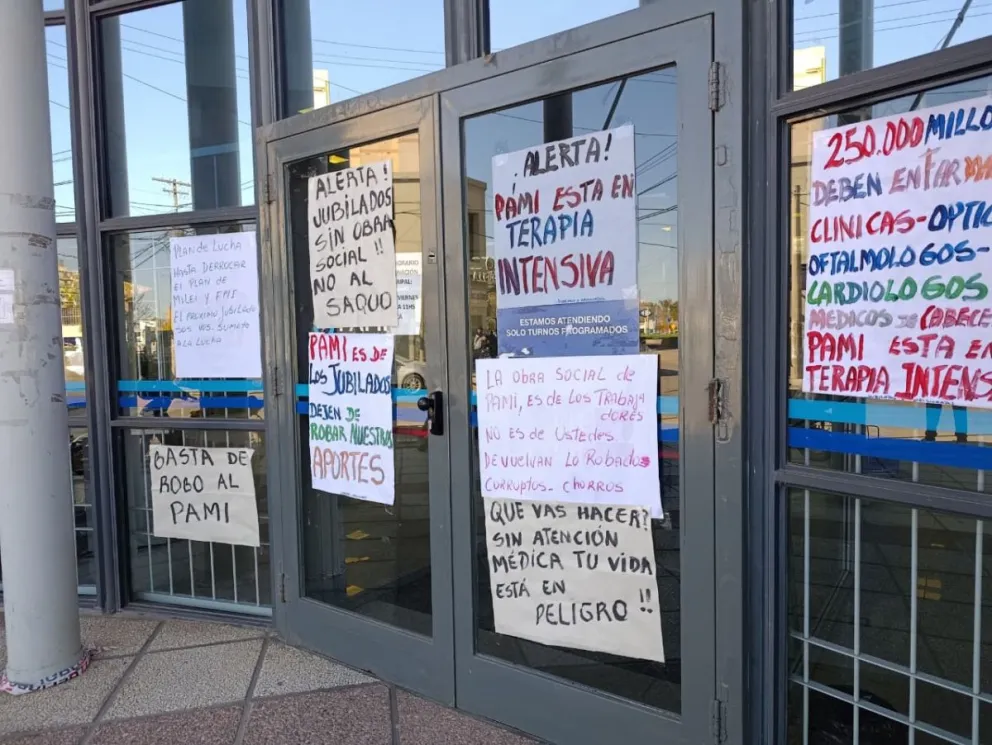 PLAN de LUCHA
HASTA DERROCAR
EL PLAN de
MILEI Y FMI
EL PROXIMO JUBILADO
SOS VOS. SUMATE
A LA LUCHA
BASTA DE
ROBO AL
PAMI
ALERTA !
JUBILADOS
SIN OBRA
SOCIAL !!
NO AL
SAQUO
PAMI ES DE
LOS JUBILADOS
DEJEN DE
ROBAR NUESTROS
APORTES
¡ALERTA!
PAMI ESTA EN
TERAPIA
INTENSIVA
ESTAMOS ATENDIENDO
SOLO TURNOS PROGRAMADOS
LA Obra SOCIAL de
PAMI, ES de LOS TRABAJA
DORES
NO ES de USTEDES
DEVUELVAN LO Robado
CURRUPTOS- CHORROS
QUE VAS HACER?
SIN ATENCIÓN
MÉDICA TU VIDA
ESTÁ EN
PELIGRO !!
250.000 MILLO
DEBEN EN FARMA
CLINICAS-OPTIC
OFTALMOLOGOS-
CARDIOLOGOS
MEDICOS DE CABECE
PAMI ESTA EN
TERAPIA INTENS